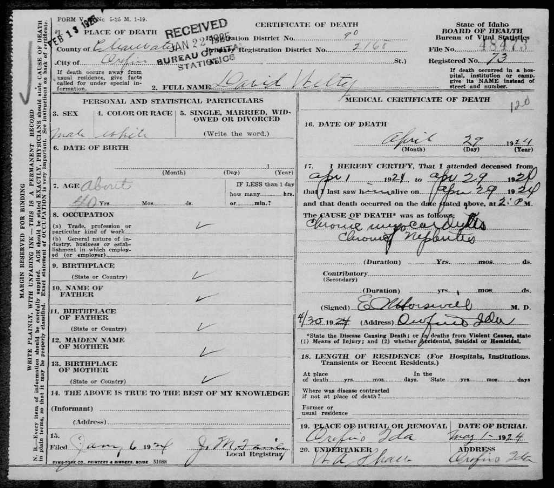 FORM V. S. No. 5-25 M. 1-19.
FEB 13 1925
RECEIVED
JAN 22 1925
BUREAU OF VITAL
STATISTICS
CERTIFICATE OF DEATH
State of Idaho
BOARD OF HEALTH
Bureau of Vital Statistics
PLACE OF DEATH
County of Clearwater
City of Orofino
Registration District No. 90
Primary Registration District No. 2168
St.)
File No. 48473
Registered No. 73
If death occurs away from usual residence, give facts called for under special information.
If death occurred in a hospital, institution or camp, give its NAME instead of street and number.
2. FULL NAME David
PERSONAL AND STATISTICAL PARTICULARS
3. SEX
male
4. COLOR OR RACE
white
5. SINGLE, MARRIED, WIDOWED OR DIVORCED
(Write the word.)
6. DATE OF BIRTH
(Month) (Day) (Year)
7. AGE About
40 Yrs. Mos. ds.
IF LESS than 1 day
how many hrs.
or min.?
8. OCCUPATION
(a) Trade, profession or particular kind of work
(b) General nature of industry, business or establishment in which employed (or employer)
9. BIRTHPLACE
(State or Country)
10. NAME OF FATHER
11. BIRTHPLACE OF FATHER
(State or Country)
12. MAIDEN NAME OF MOTHER
13. BIRTHPLACE OF MOTHER
(State or Country)
14. THE ABOVE IS TRUE TO THE BEST OF MY KNOWLEDGE
(Informant)
(Address)
15.
Filed 6 1924
Local Registrar
MEDICAL CERTIFICATE OF DEATH
120
16. DATE OF DEATH
April 29 1924
(Month) (Day) (Year)
17. I HEREBY CERTIFY, That I attended deceased from
Apr 1 1924 to Apr 29 1924
that I last saw him alive on Apr 29 1924
and that death occurred on the date stated above, at M.
The CAUSE OF DEATH* was as follows:
Chronic myocarditis
Chronic Nephritis
(Duration) Yrs. mos. ds.
Contributory
(Secondary)
(Duration) Yrs. mos. ds.
(Signed) M. D.
4/30 1924 (Address) Orofino Ida
*State the Disease Causing Death; or in deaths from Violent Causes, state (1) Means of Injury; and (2) whether Accidental, Suicidal or Homicidal.
18. LENGTH OF RESIDENCE (For Hospitals, Institutions, Transients or Recent Residents.)
At place of death yrs. mos. days. In the State yrs. mos. days
Where was disease contracted
if not at place of death?
Former or
usual residence
19. PLACE OF BURIAL OR REMOVAL
Orofino Ida
DATE OF BURIAL
May 1 1924
20. UNDERTAKER
ADDRESS
Orofino Ida
MARGIN RESERVED FOR BINDING
WRITE PLAINLY, WITH UNFADING INK—THIS IS A PERMANENT RECORD